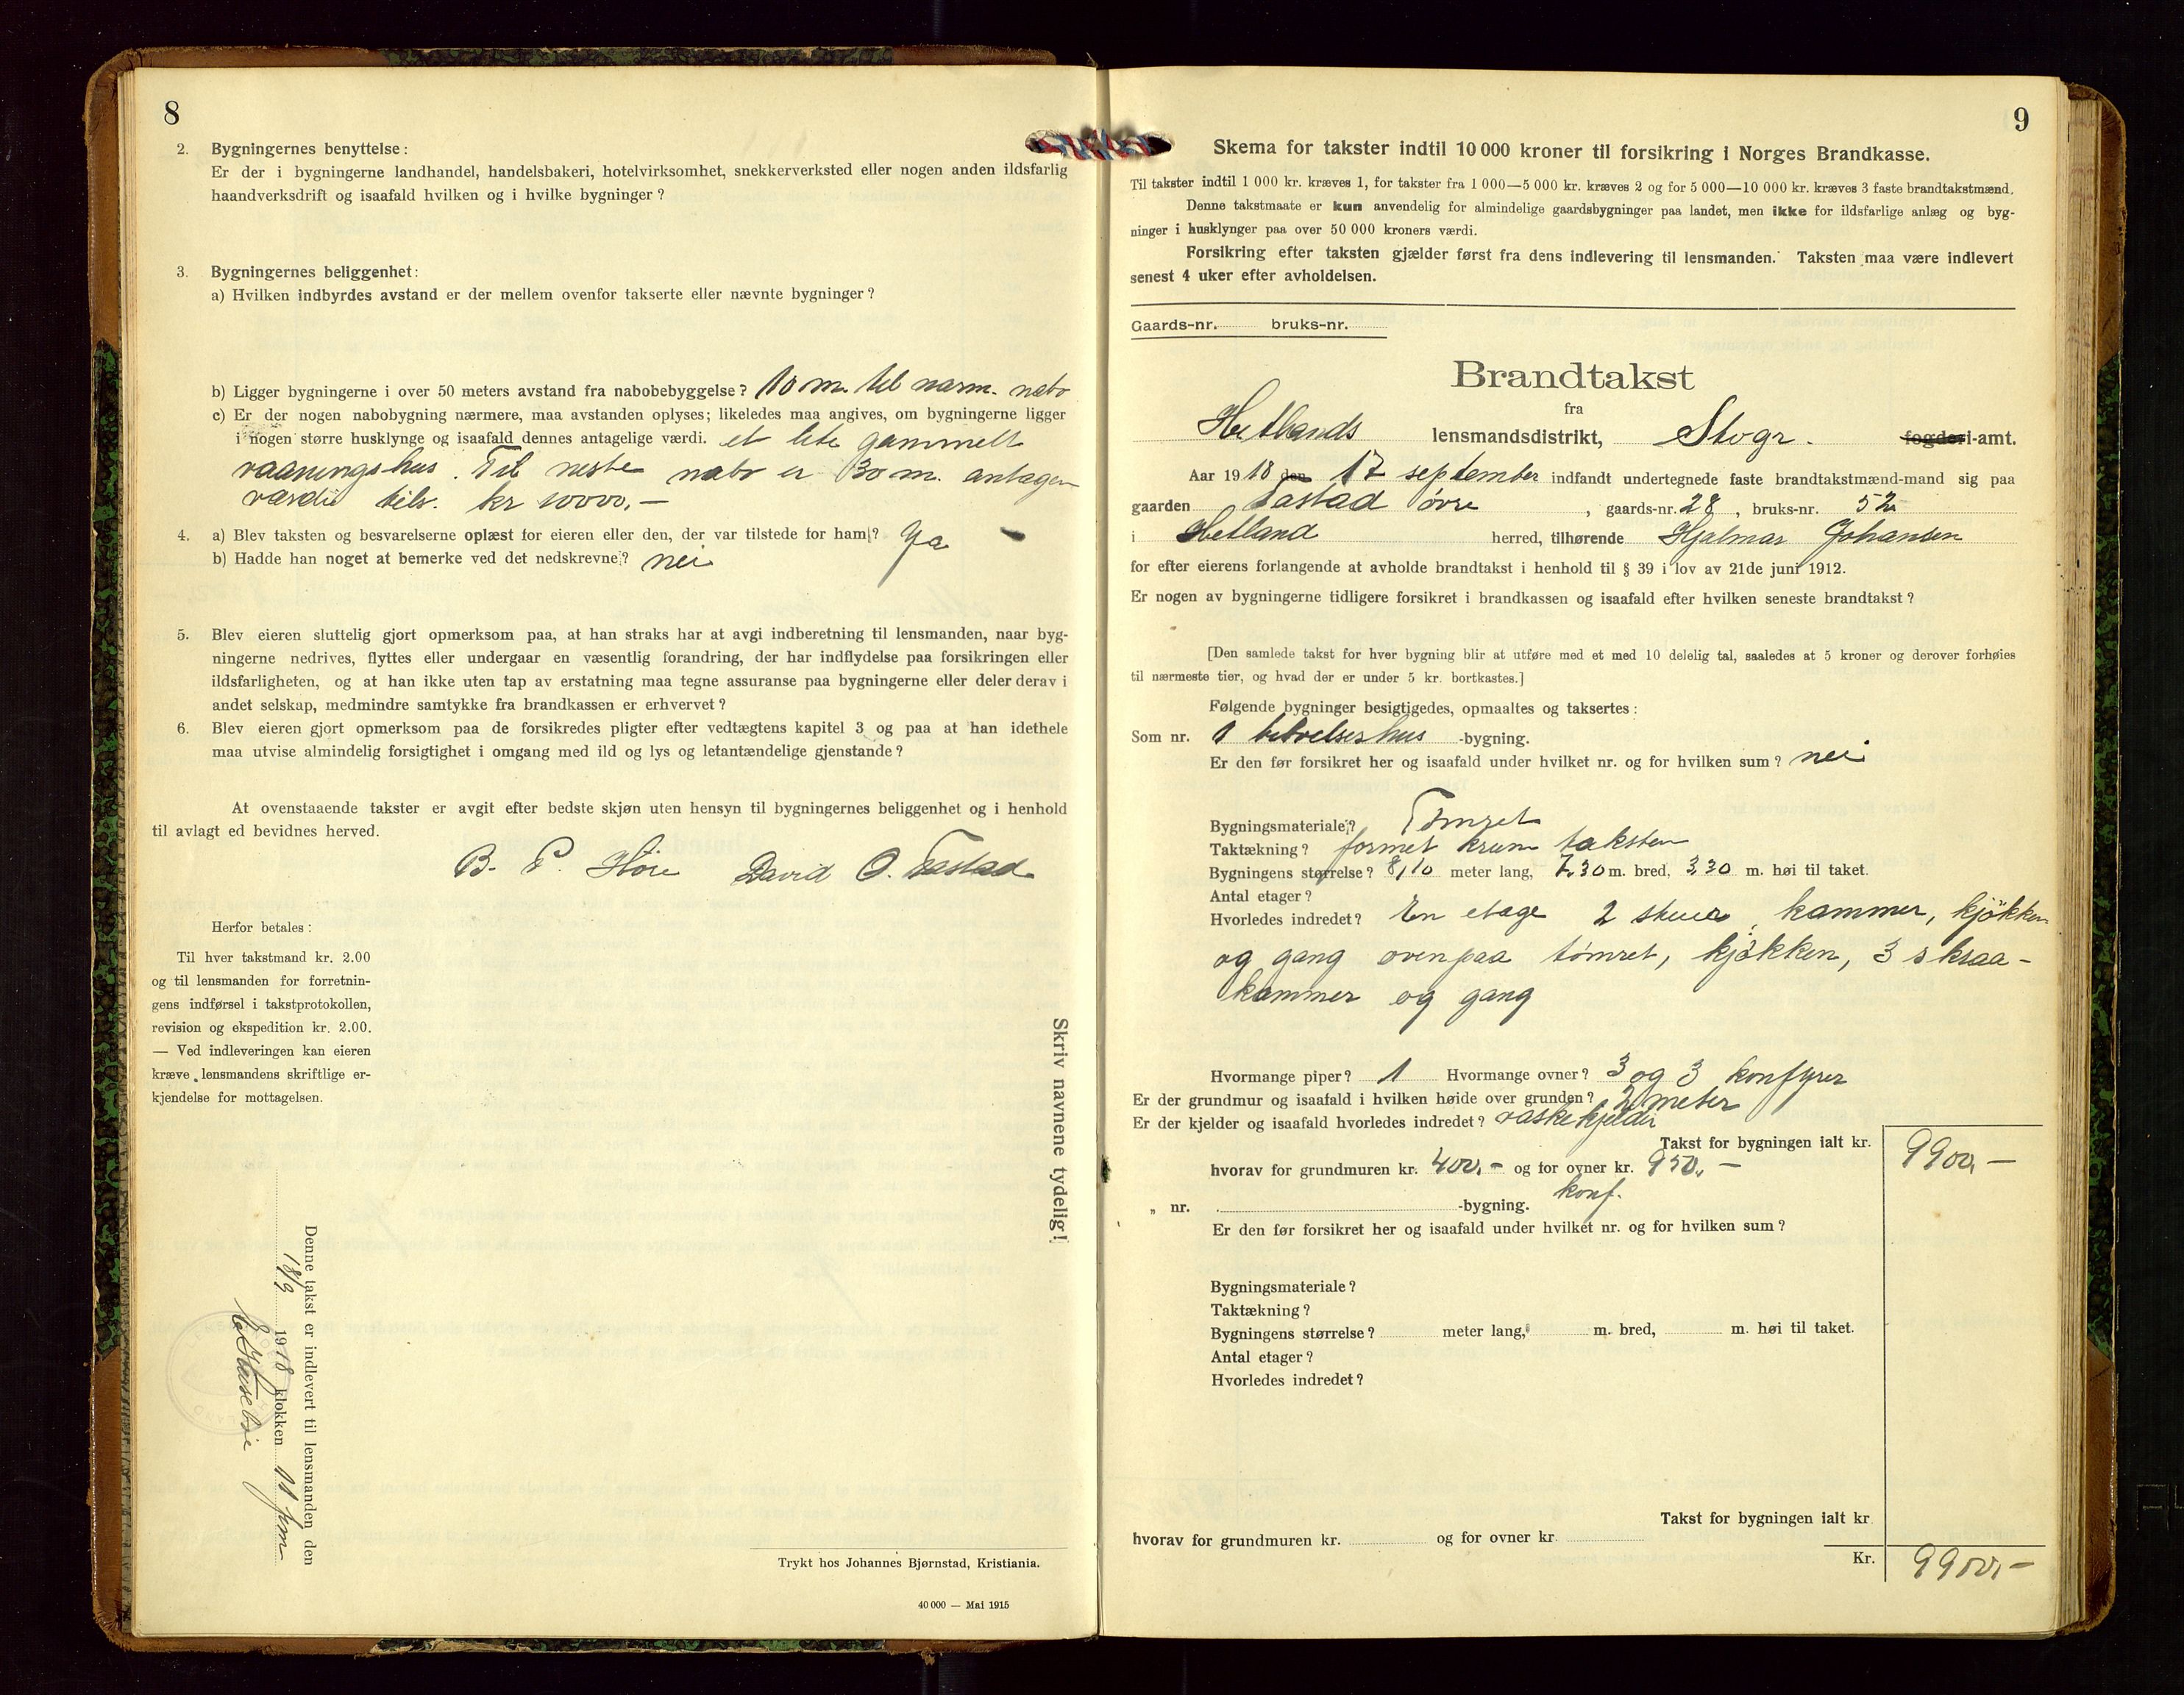 8
2. Bygningernes benyttelse:
Er der i bygningerne landhandel, handelsbakeri, hotelvirksomhet, snekkerverksted eller nogen anden ildsfarlig
haandverksdrift og isaafald hvilken og i hvilke bygninger?
3. Bygningernes beliggenhet:
a) Hvilken indbyrdes avstand er der mellem ovenfor takserte eller nævnte bygninger?
b) Ligger bygningerne i over 50 meters avstand fra nabobebyggelse? 10 m. til nærm. nabo
c) Er der nogen nabobygning nærmere, maa avstanden oplyses; likeledes maa angives, om bygningerne ligger
i nogen større husklynge og isaafald dennes antagelige værdi. et lite gammelt
vaaningshus. Til neste nabo er 30 m. antagen
værdi tils. kr 10000,-
4. a) Blev taksten og besvarelserne oplæst for eieren eller den, der var tilstede for ham? Ja
b) Hadde han noget at bemerke ved det nedskrevne? nei
5. Blev eieren sluttelig gjort opmerksom paa, at han straks har at avgi indberetning til lensmanden, naar byg-
ningerne nedrives, flyttes eller undergaar en væsentlig forandring, der har indflydelse paa forsikringen eller
ildsfarligheten, og at han ikke uten tap av erstatning maa tegne assuranse paa bygningerne eller deler derav i
andet selskap, medmindre samtykke fra brandkassen er erhvervet?
6. Blev eieren gjort opmerksom paa de forsikredes pligter efter vedtægtens kapitel 3 og paa at han idethele
maa utvise almindelig forsigtighet i omgang med ild og lys og letantændelige gjenstande?
At ovenstaaende takster er avgit efter bedste skjøn uten hensyn til bygningernes beliggenhet og i henhold
til avlagt ed bevidnes herved.
B. P. Høie David O. Tastad
Herfor betales:
Til hver takstmand kr. 2.00
og til lensmanden for forretnin-
gens indførsel i takstprotokollen,
revision og ekspedition kr. 2.00.
— Ved indleveringen kan eieren
kræve lensmandens skriftlige er-
kjendelse for mottagelsen.
Skriv navnene tydelig!
Denne takst er indlevert til lensmanden den
18/9 1918 klokken 11 fm
Trykt hos Johannes Bjørnstad, Kristiania.
40 000 — Mai 1915
9
Skema for takster indtil 10 000 kroner til forsikring i Norges Brandkasse.
Til takster indtil 1 000 kr. kræves 1, for takster fra 1 000—5 000 kr. kræves 2 og for 5 000—10 000 kr. kræves 3 faste brandtakstmænd.
Denne takstmaate er kun anvendelig for almindelige gaardsbygninger paa landet, men ikke for ildsfarlige anlæg og byg-
ninger i husklynger paa over 50 000 kroners værdi.
Forsikring efter taksten gjælder først fra dens indlevering til lensmanden. Taksten maa være indlevert
senest 4 uker efter avholdelsen.
Gaards-nr. bruks-nr.
Brandtakst
fra
Hetlands lensmandsdistrikt, Stvgr. fogderi-amt.
Aar 1918 den 17 september indfandt undertegnede faste brandtakstmænd-mand sig paa
gaarden Tastad øvre, gaards-nr. 28, bruks-nr. 52
i Hetland herred, tilhørende Hjalmar Johansen
for efter eierens forlangende at avholde brandtakst i henhold til § 39 i lov av 21de juni 1912.
Er nogen av bygningerne tidligere forsikret i brandkassen og isaafald efter hvilken seneste brandtakst?
[Den samlede takst for hver bygning blir at utføre med et med 10 delelig tal, saaledes at 5 kroner og derover forhøies
til nærmeste tier, og hvad der er under 5 kr. bortkastes.]
Følgende bygninger besigtigedes, opmaaltes og taksertes:
Som nr. 1 beboelseshus -bygning.
Er den før forsikret her og isaafald under hvilket nr. og for hvilken sum? nei
Bygningsmateriale? Tømret
Taktækning? formet krum taksten
Bygningens størrelse? 8,10 meter lang, 7,30 m. bred, 3,30 m. høi til taket.
Antal etager?
Hvorledes indredet? En etage 2 stuer, kammer, kjøkken
og gang ovenpaa tømret, kjøkken, 3 skraa-
kammer og gang
Hvormange piper? 1 Hvormange ovner? 3 og 3 konfyrer
Er der grundmur og isaafald i hvilken høide over grunden? 2 meter
Er der kjelder og isaafald hvorledes indredet? vaskekjelder
Takst for bygningen ialt kr. 9900,—
hvorav for grundmuren kr. 400,- og for ovner kr. 950,-
konf.
„ nr. -bygning.
Er den før forsikret her og isaafald under hvilket nr. og for hvilken sum?
Bygningsmateriale?
Taktækning?
Bygningens størrelse? meter lang, m. bred, m. høi til taket.
Antal etager?
Hvorledes indredet?
Takst for bygningen ialt kr
hvorav for grundmuren kr. og for ovner kr.
Kr. 9900,-